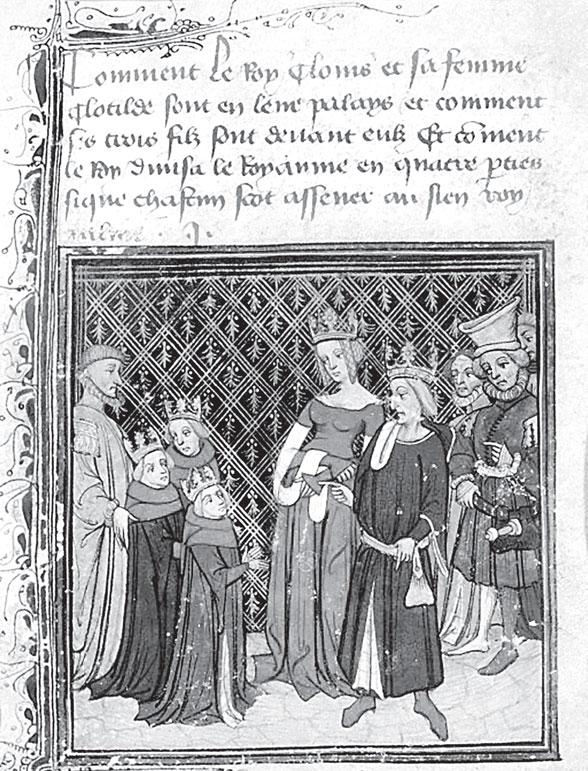 Comment le Roy Clovis et sa femme
Clotilde sont en leur palays et comment
ses trois filz sont devant eulx Et co͞ment
le Roy divisa le Royaume en quatre p̱ties
si que chascun scot assener au sien roy
aulme . J .